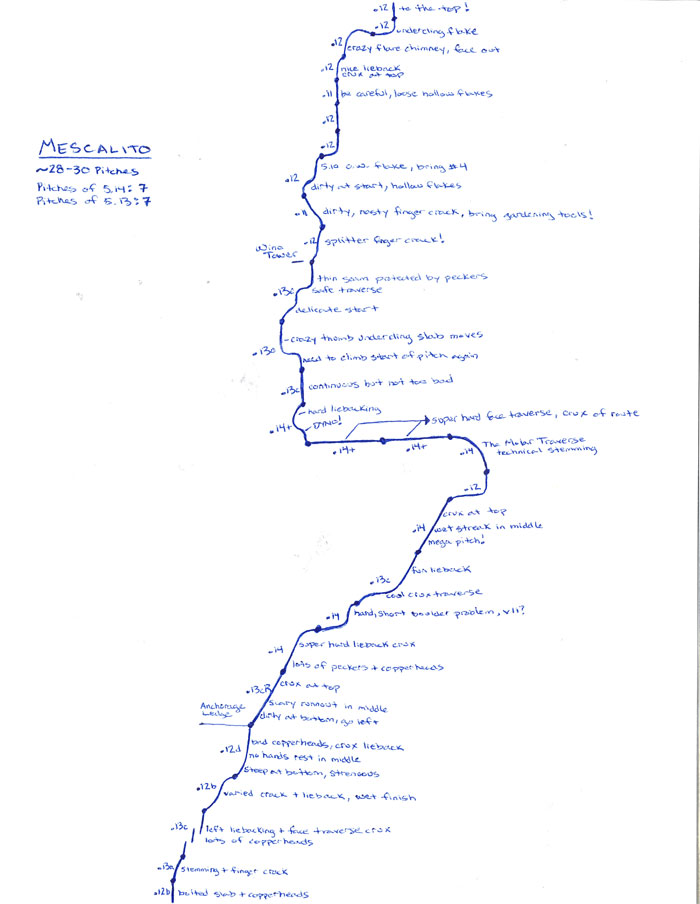 .12 to the top!
.12 undercling flake
.12 crazy flare chimney, face out
.12 nice lieback
crux at top
.11 be careful, loose hollow flakes
.12
MESCALITO
~28-30 Pitches
Pitches of 5.14: 7
Pitches of 5.13: 7
5.10 o.w. flake, bring #4
.12 dirty at start, hollow flakes
.11 dirty, nasty finger crack, bring gardening tools!
.12 splitter finger crack!
Wino
Tower
thin seam protected by peckers
.13c safe traverse
delicate start
crazy thumb undercling slab moves
.13c
need to climb start of pitch again
.13c continuous but not too bad
hard liebacking
.14+ DYNO!
super hard face traverse, crux of route
.14+ .14+ .14 The Molar Traverse
technical stemming
.12
crux at top
.14 wet streak in middle
mega pitch!
fun lieback
.13c
cool crux traverse
.14 hard, short boulder problem, V11?
.14 super hard lieback crux
lots of peckers + copperheads
.13cR crux at top
scary runout in middle
Anchorage
Ledge
dirty at bottom, go left
.12d bad copperheads, crux lieback
no hands rest in middle
steep at bottom, strenuous
.12b varied crack + lieback, wet finish
.13c left liebacking + face traverse crux
lots of copperheads
.13a stemming + finger crack
.12b bolted slab + copperheads